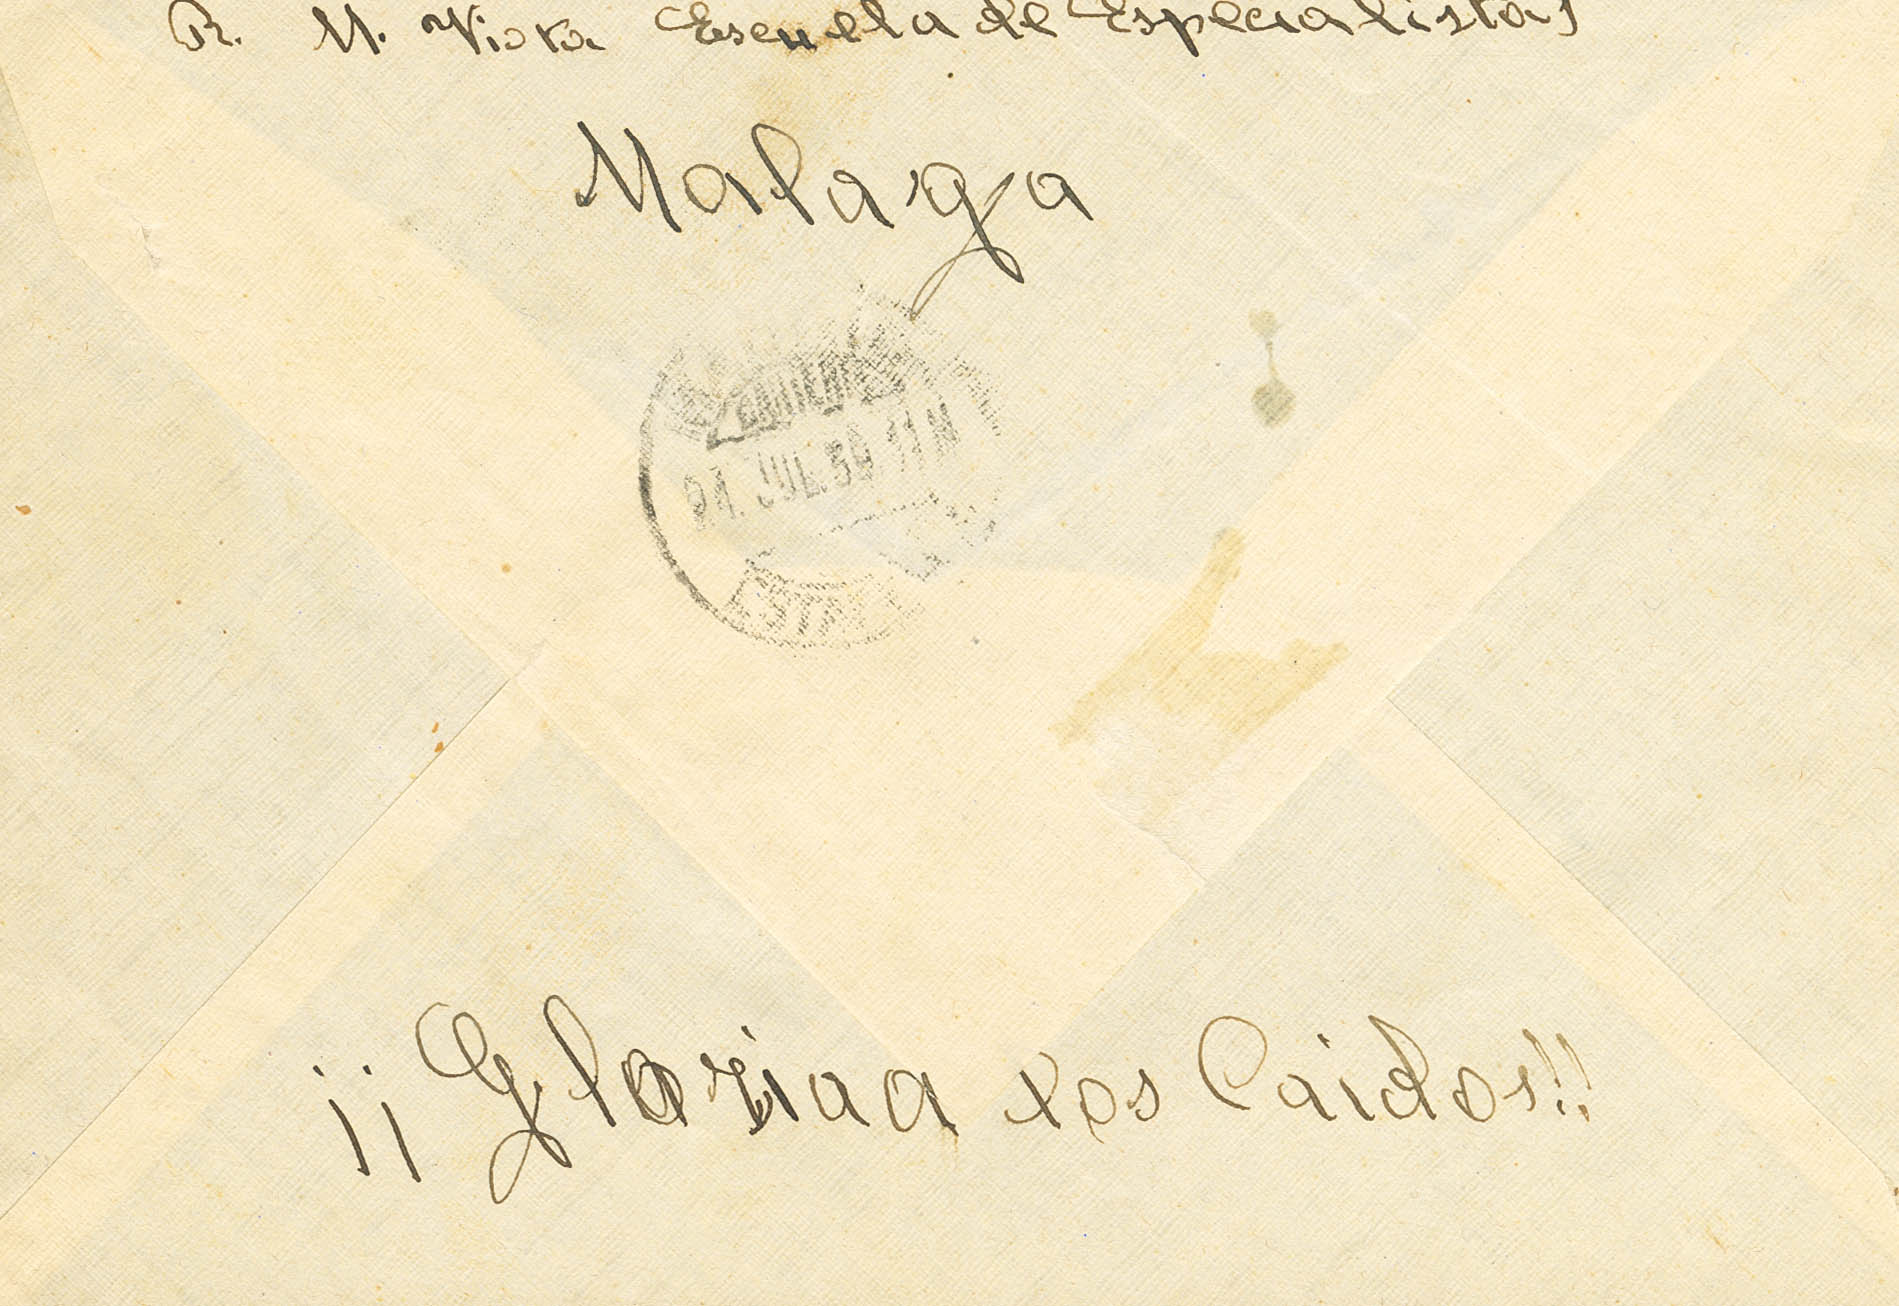 R. M. Viota Escuela de Especialistas
Malaga
JUL. 11 M
¡¡Gloria a los Caidos!!